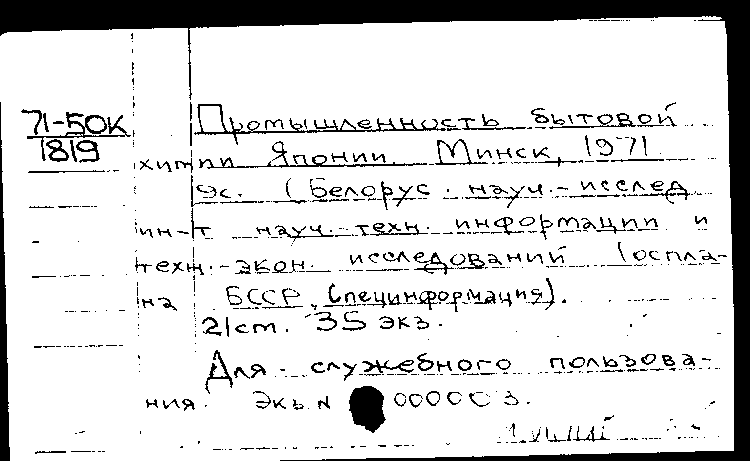 71-50К
1819
Промышленность бытовой
химии Японии. Минск, 1971
9с. (Белорус. науч.-исслед
ин-т науч.-техн. информации и
техн.-экон. исследований Госпла-
на БССР, Специнформация).
21см. 35 экз.
Для служебного пользова-
ния. Экз N 000003.